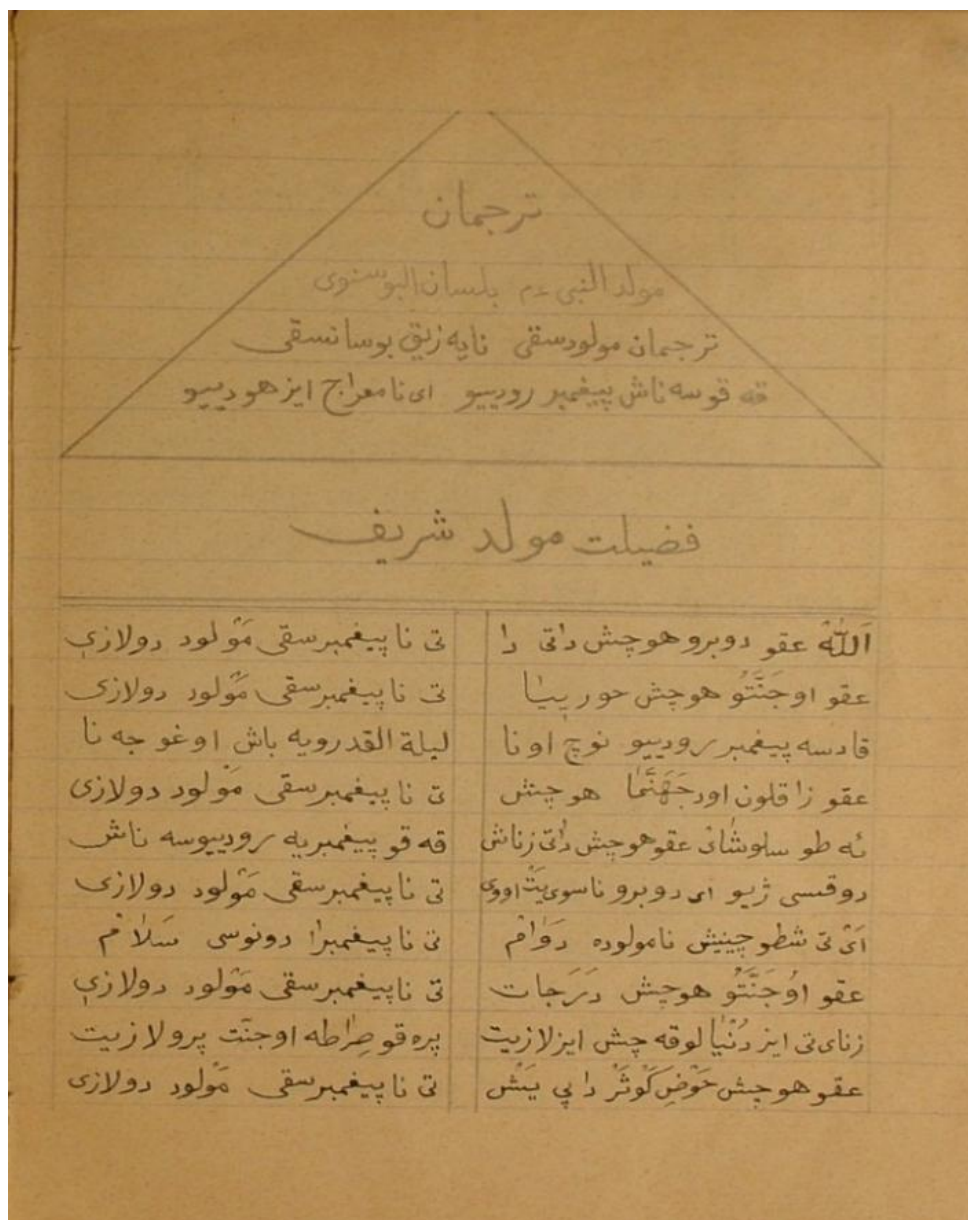 ترجمان
مولد النبی عم بلسان البوسنوی
ترجمان مولودسقی نایه زیق بوسانسقی
قه قو سه ناش پیغمبر رودییو ای نا معراج ایز هودییو
فضیلت مولد شریف
اَللّٰهْ عقو دوبرو هوچش داتی دا تی نا پیغمبرسقی مَوْلود دولازی
عقو او جَنَّتُو هوچش حوریییا تی نا پیغمبرسقی مَوْلود دولازی
قادسه پیغمبر رودییو نوچ اونا لیلة القدرویه باش اوغو جه نا
عقو زاقلون اود جَهَنَّمَا هوچش تی نا پیغمبرسقی مَوْلود دولازی
نه طو سلوشای عقو هوچش داتی زناش قه قو پیغمبریه رودییوسه ناش
دوقسی ژیو ای دوبرو ناسوی یَتْ اووی تی نا پیغمبرسقی مَوْلود دولازی
اَیْ تی شطو چینیش نامولوده دَوَامْ تی نا پیغمبرا دونوسی سَلَامْ
عقو اوُ جَنَّتُو هوچش دَرَجات تی نا پیغمبرسقی مَوْلود دولازی
زنای تی ایز دُنْیَا لوقه چش ایزلازیت پره قو صِرَاطه او جنّت پرولازیت
عقو هوچش حَوْضِ كَوْثَرْ دا پی یَشْ تی نا پیغمبرسقی مَوْلود دولازی